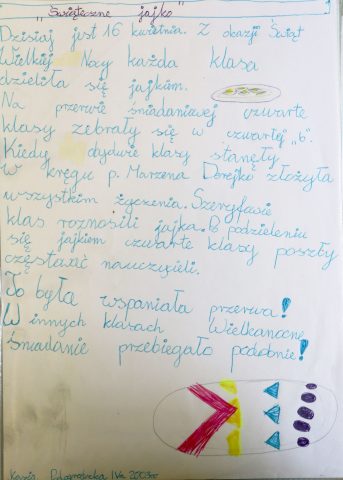 "Świąteczne jajko"
Dzisiaj jest 16 kwietnia. Z okazji Świąt
Wielkiej Nocy każda klasa
dzieliła się jajkiem.
Na przerwie śniadaniowej czwarte
klasy zebrały się w czwartej „b".
Kiedy dydwie klasy stanęły
w kręgu p. Marzena Dorejko złożyła
wszystkim życzenia. Szeryfowie
klas roznosili jajka. P podzieleniu
się jajkiem czwarte klasy poszły
częstować nauczycieli.
To była wspaniała przerwa!
W innych klasach Wielkanocne
Śniadanie przebiegało podobnie!
Kasia IVa 2003r